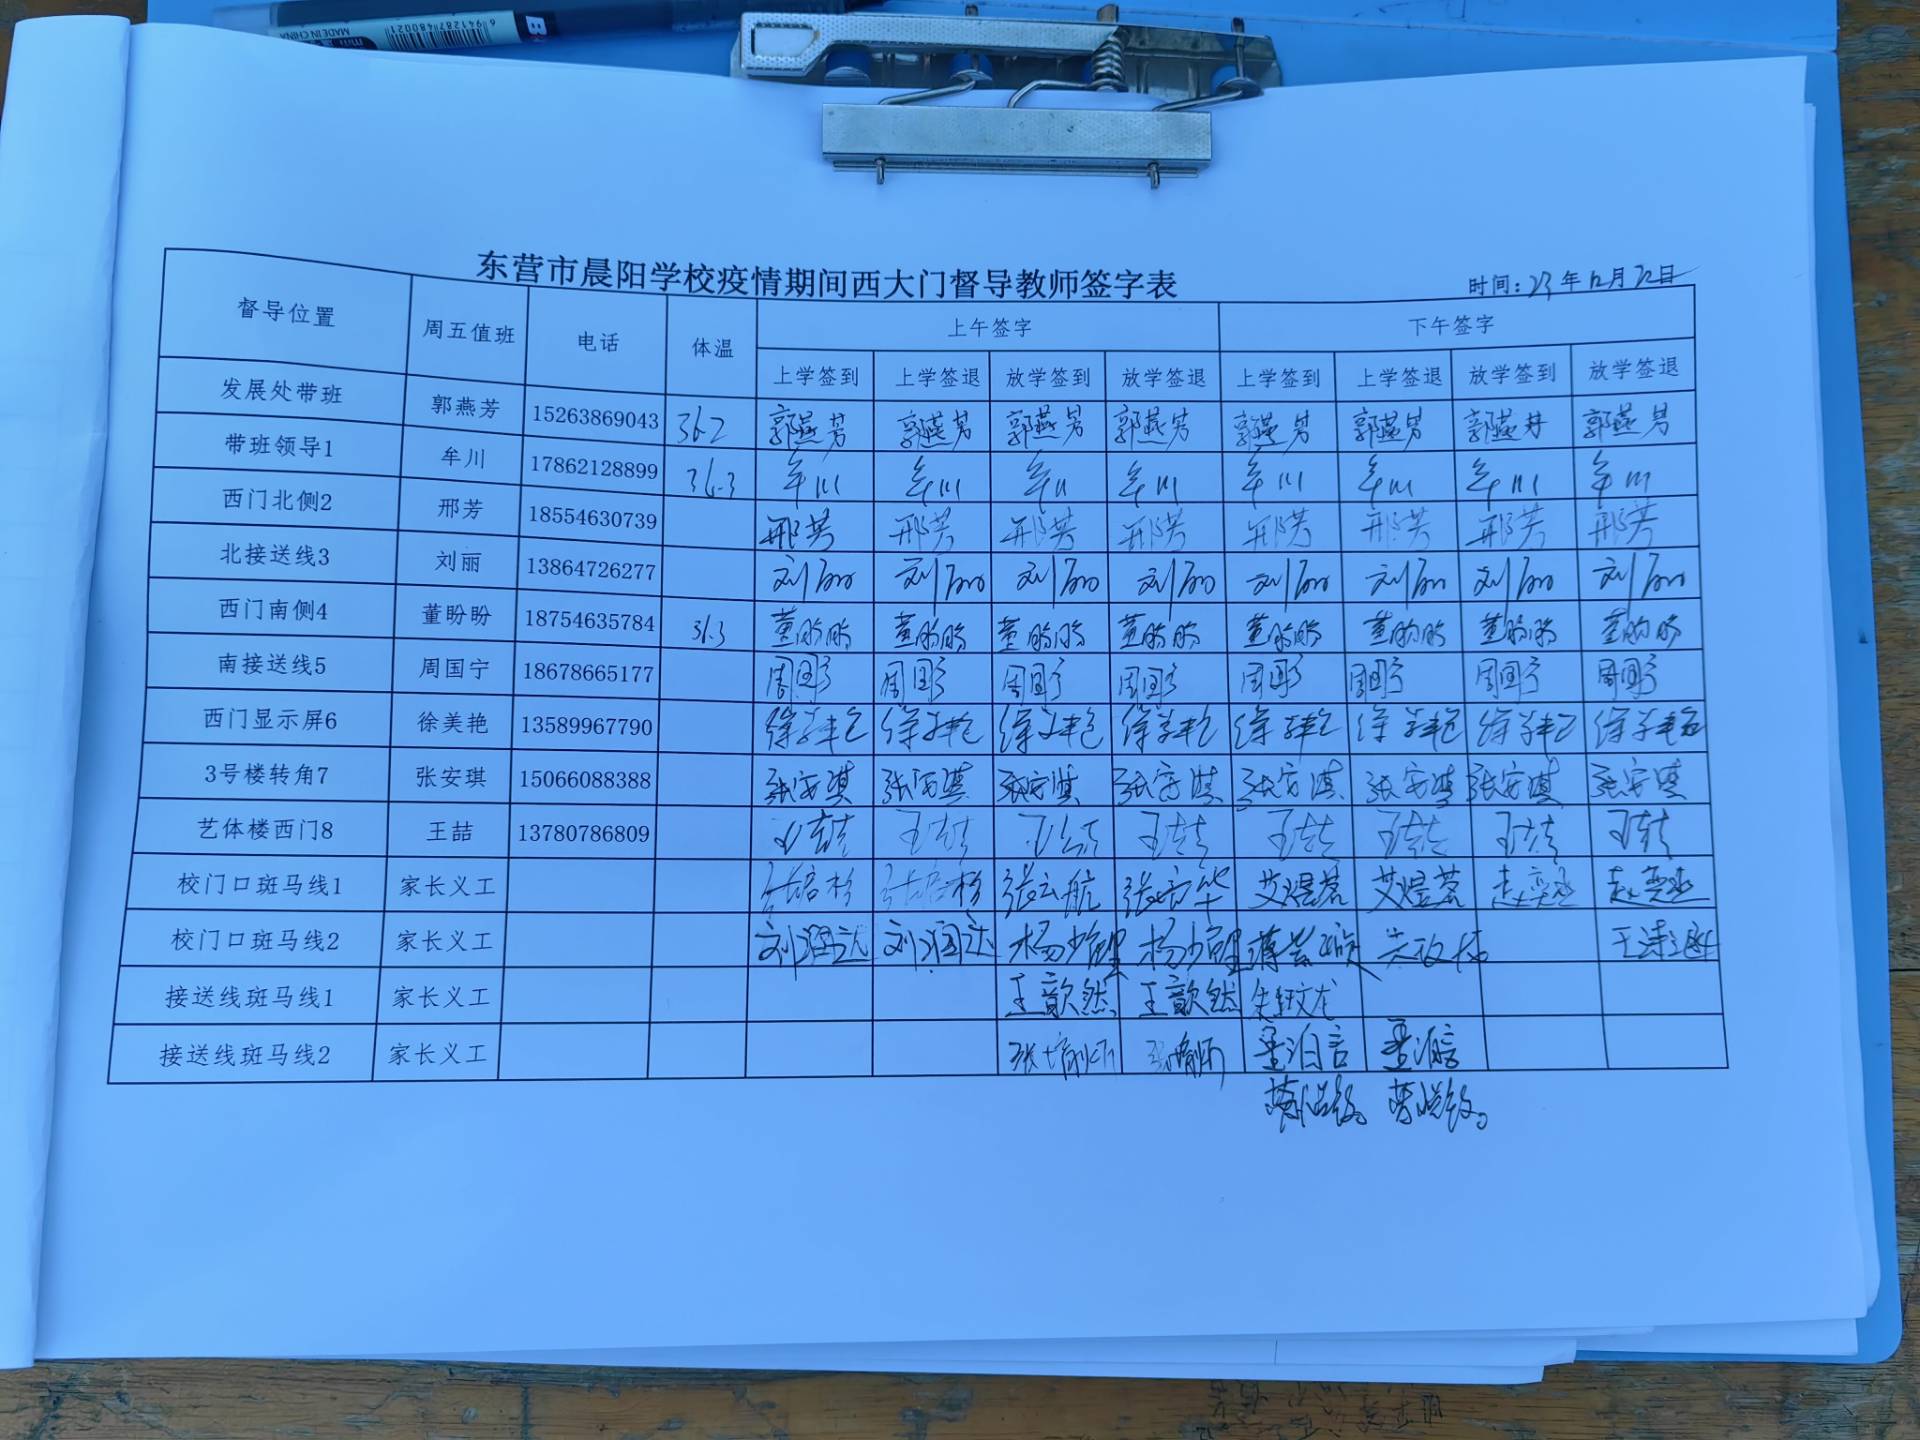 6941287480021
MADE IN CHINA
东营市晨阳学校疫情期间西大门督导教师签字表
时间：23年12月22日
督导位置 周五值班 电话 体温 上午签字 下午签字
上学签到 上学签退 放学签到 放学签退 上学签到 上学签退 放学签到 放学签退
发展处带班 郭燕芳 15263869043 36.2 郭燕芳 郭燕芳 郭燕芳 郭燕芳 郭燕芳 郭燕芳 郭燕芳 郭燕芳
带班领导1 牟川 17862128899 36.3 牟川 牟川 牟川 牟川 牟川 牟川 牟川 牟川
西门北侧2 邢芳 18554630739 邢芳 邢芳 邢芳 邢芳 邢芳 邢芳 邢芳 邢芳
北接送线3 刘丽 13864726277 刘丽 刘丽 刘丽 刘丽 刘丽 刘丽 刘丽 刘丽
西门南侧4 董盼盼 18754635784 36.3 董盼盼 董盼盼 董盼盼 董盼盼 董盼盼 董盼盼 董盼盼 董盼盼
南接送线5 周国宁 18678665177 周国宁 周国宁 周国宁 周国宁 周国宁 周国宁 周国宁 周国宁
西门显示屏6 徐美艳 13589967790 徐美艳 徐美艳 徐美艳 徐美艳 徐美艳 徐美艳 徐美艳 徐美艳
3号楼转角7 张安琪 15066088388 张安琪 张安琪 张安琪 张安琪 张安琪 张安琪 张安琪 张安琪
艺体楼西门8 王喆 13780786809 王喆 王喆 王喆 王喆 王喆 王喆 王喆 王喆
校门口斑马线1 家长义工 张云航 艾煜茗 艾煜茗
校门口斑马线2 家长义工 刘润远 刘润远
接送线斑马线1 家长义工 王歆然 王歆然 朱钰文龙
接送线斑马线2 家长义工